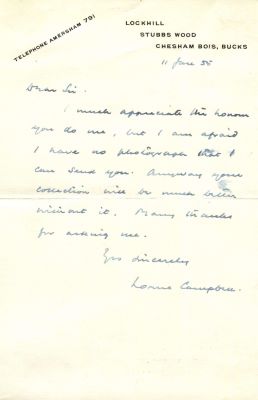 TELEPHONE AMERSHAM 791
LOCKHILL
STUBBS WOOD
CHESHAM BOIS, BUCKS
11 June 55
Dear Sir.
I much appreciate the honour
you do me, but I am afraid
I have no photograph that I
can send you. Anyway your
collection will be much better
without it. Many thanks
for asking me.
Yrs sincerely
Lorne Campbell.